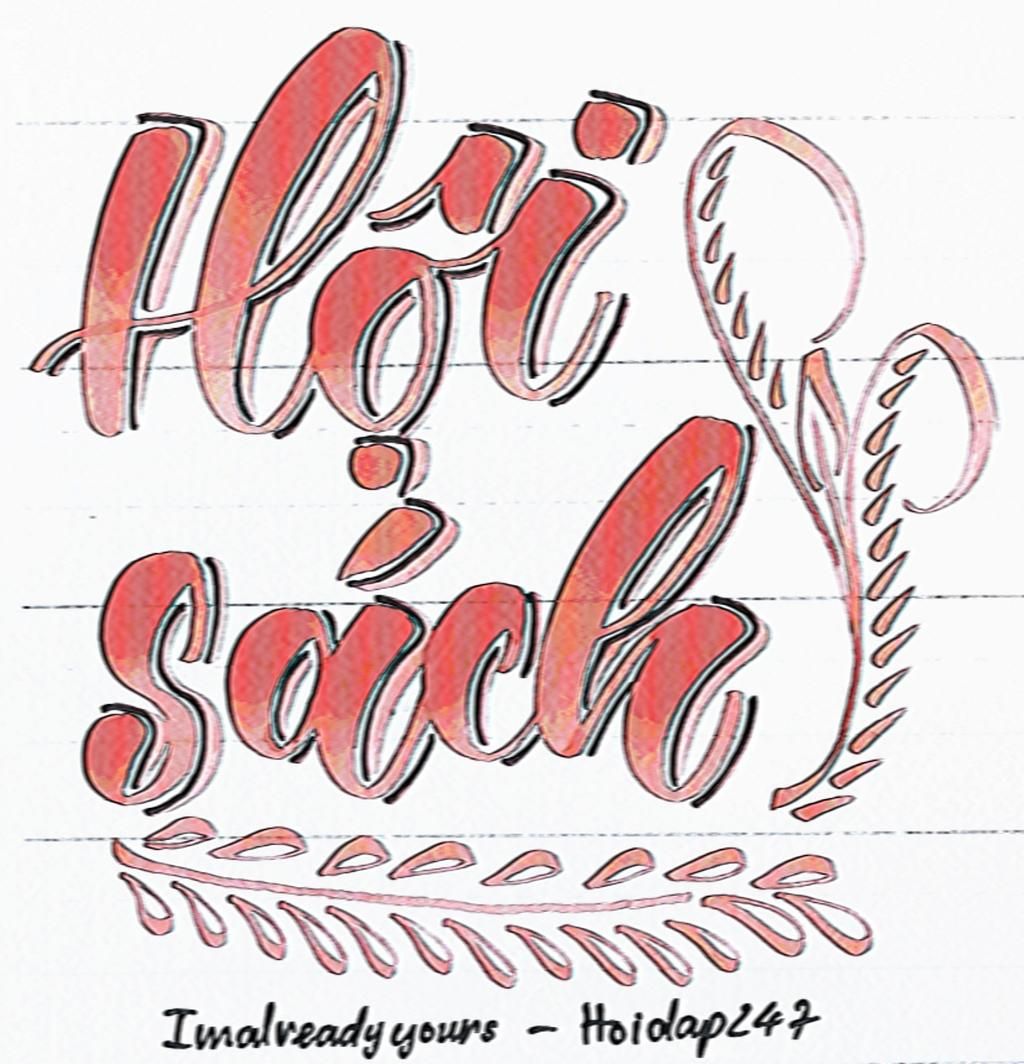 Hội
sách
Imalreadyyours - Hoidap247